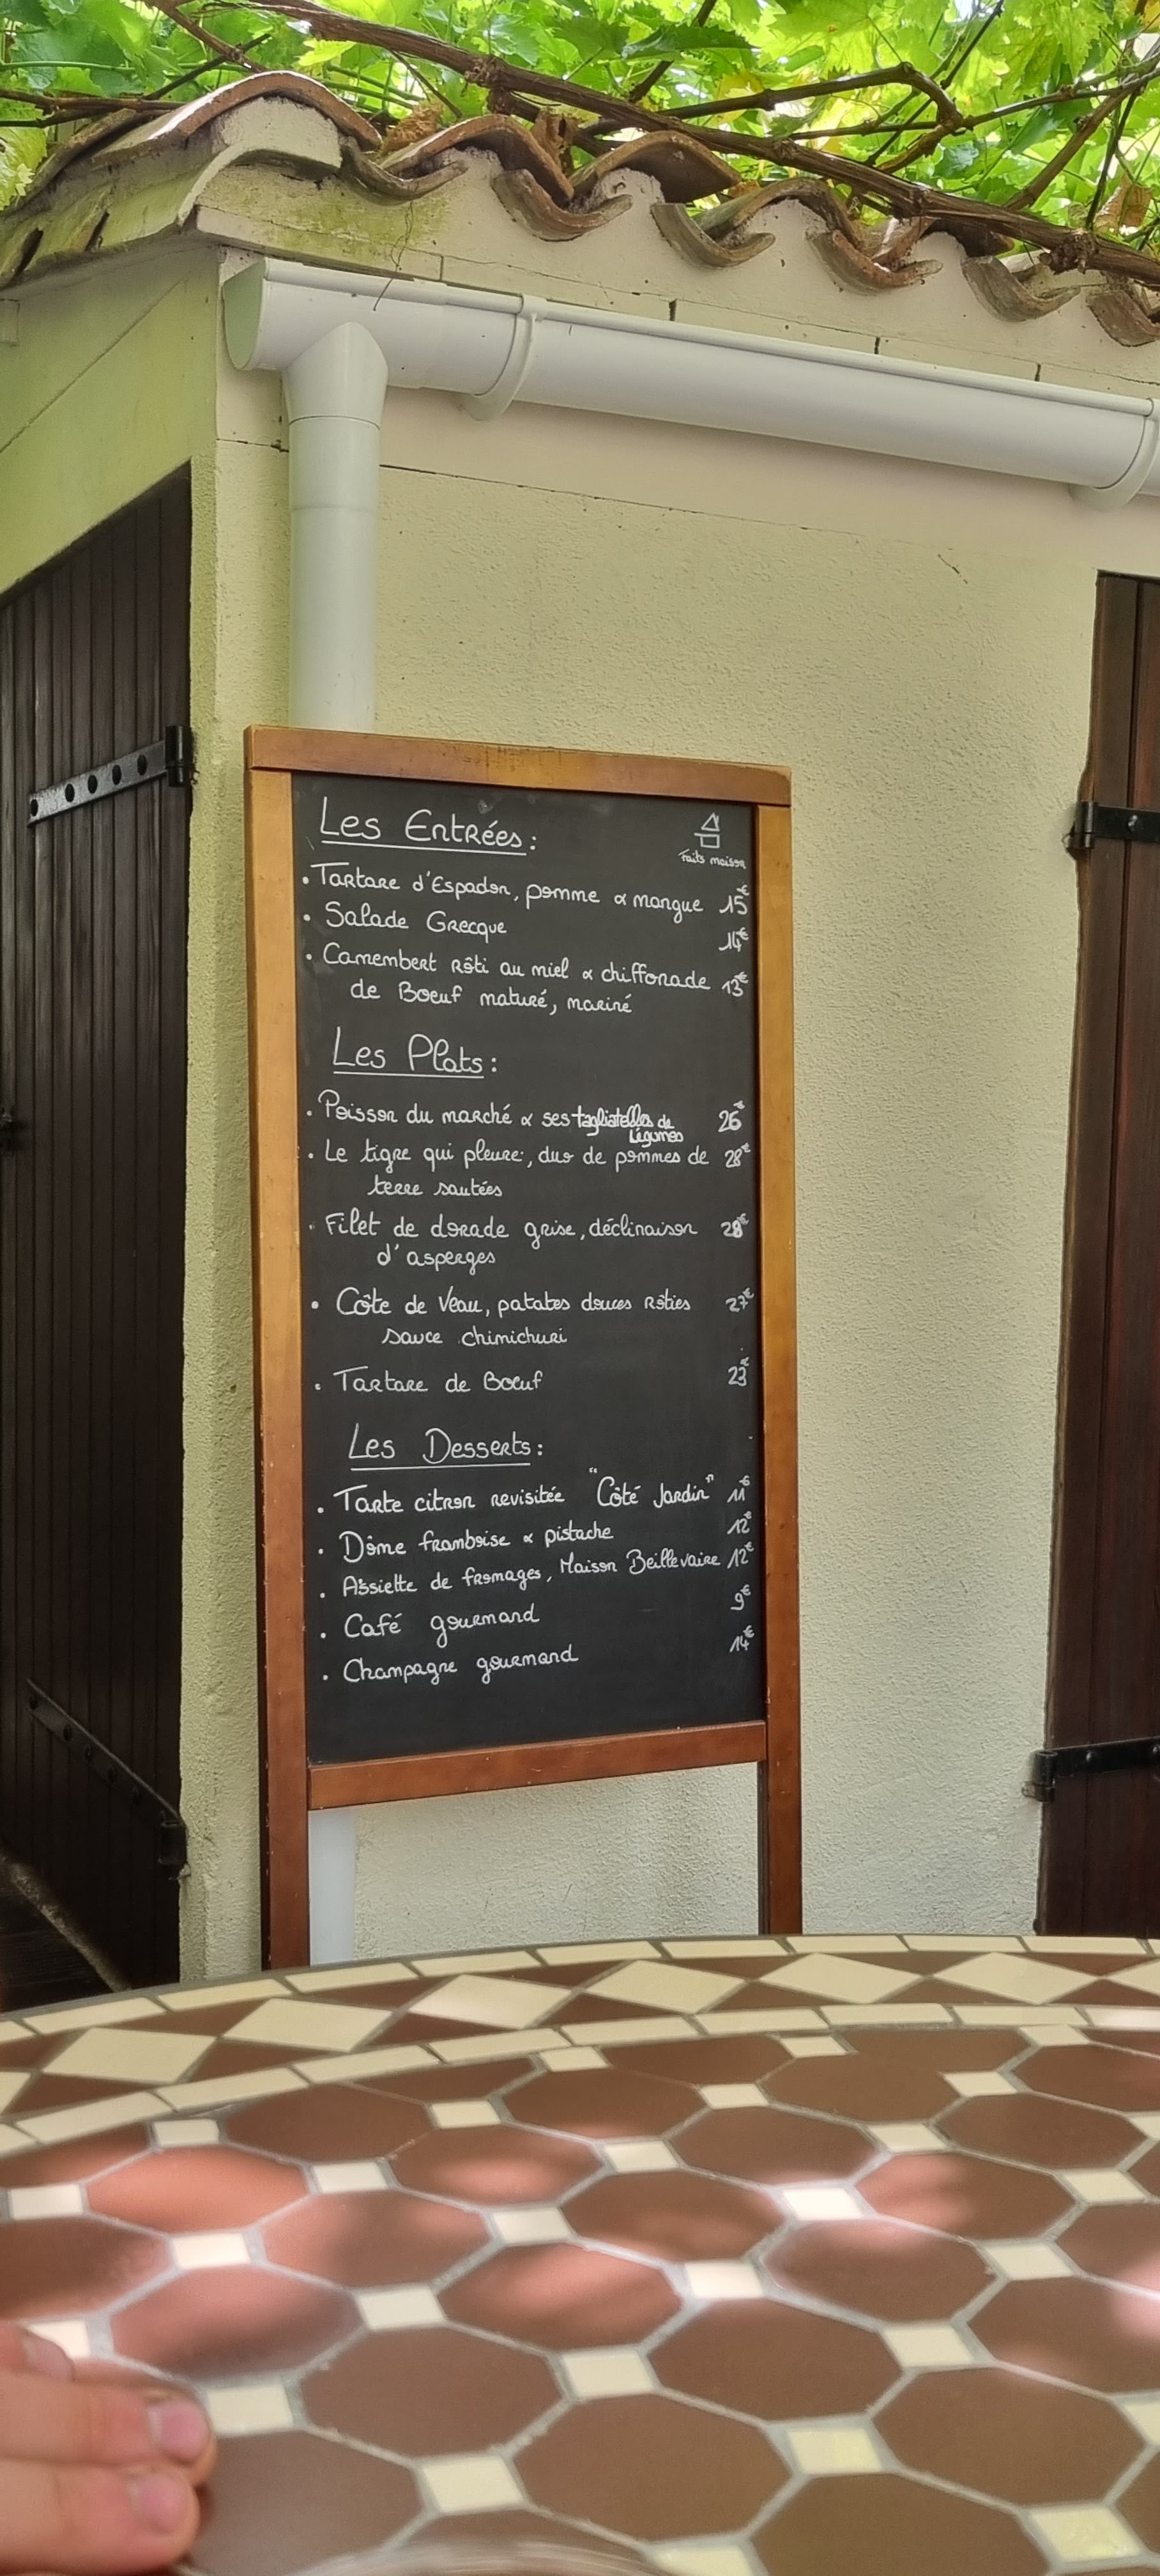 Les Entrées :
Faits maison
• Tartare d'Espadon, pomme & mangue 15€
• Salade Grecque 14€
• Camembert Rôti au miel & chiffonade 13€
de Boeuf maturé, mariné
Les Plats :
• Poisson du marché & ses tagliatelles de 26€
Légumes
• Le tigre qui pleure, duo de pommes de 28€
terre sautées
• Filet de dorade grise, déclinaison 28€
d'asperges
• Côte de Veau, patates douces Rôties 27€
sauce chimichuri
• Tartare de Boeuf 23€
Les Desserts :
• Tarte citron revisitée "Côté Jardin" 11€
• Dôme framboise & pistache 12€
• Assiette de fromages, Maison Beillevaire 12€
• Café gourmand 9€
• Champagne gourmand 14€